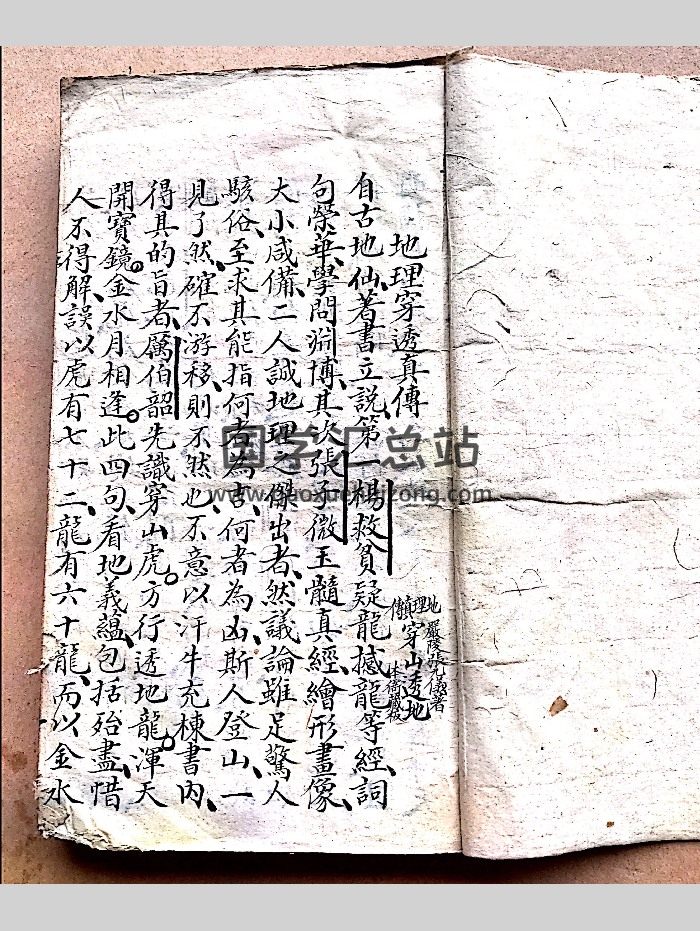 地理穿透真傳
地理真傳
嚴陵張九儀著
穿山透地
自古地仙著書立說第一楊救貧疑龍撼龍等經詞
句榮華學問淵博其次張子微玉髓真經繪形畫像
大小咸備二人誠地理之傑出者然議論雖足驚人
駭俗至求其能指何者為吉何者為凶斯人登山一
見了然確不游移則不然也不意以汗牛充棟書內
得其的旨者厲伯韶先識穿山虎方行透地龍渾天
開寶鏡金水月相逢此四句看地義蘊包括殆盡惜
人不得解誤以虎有七十二龍有六十龍而以金水
国学汇总站
www.guoxuehuizong.com